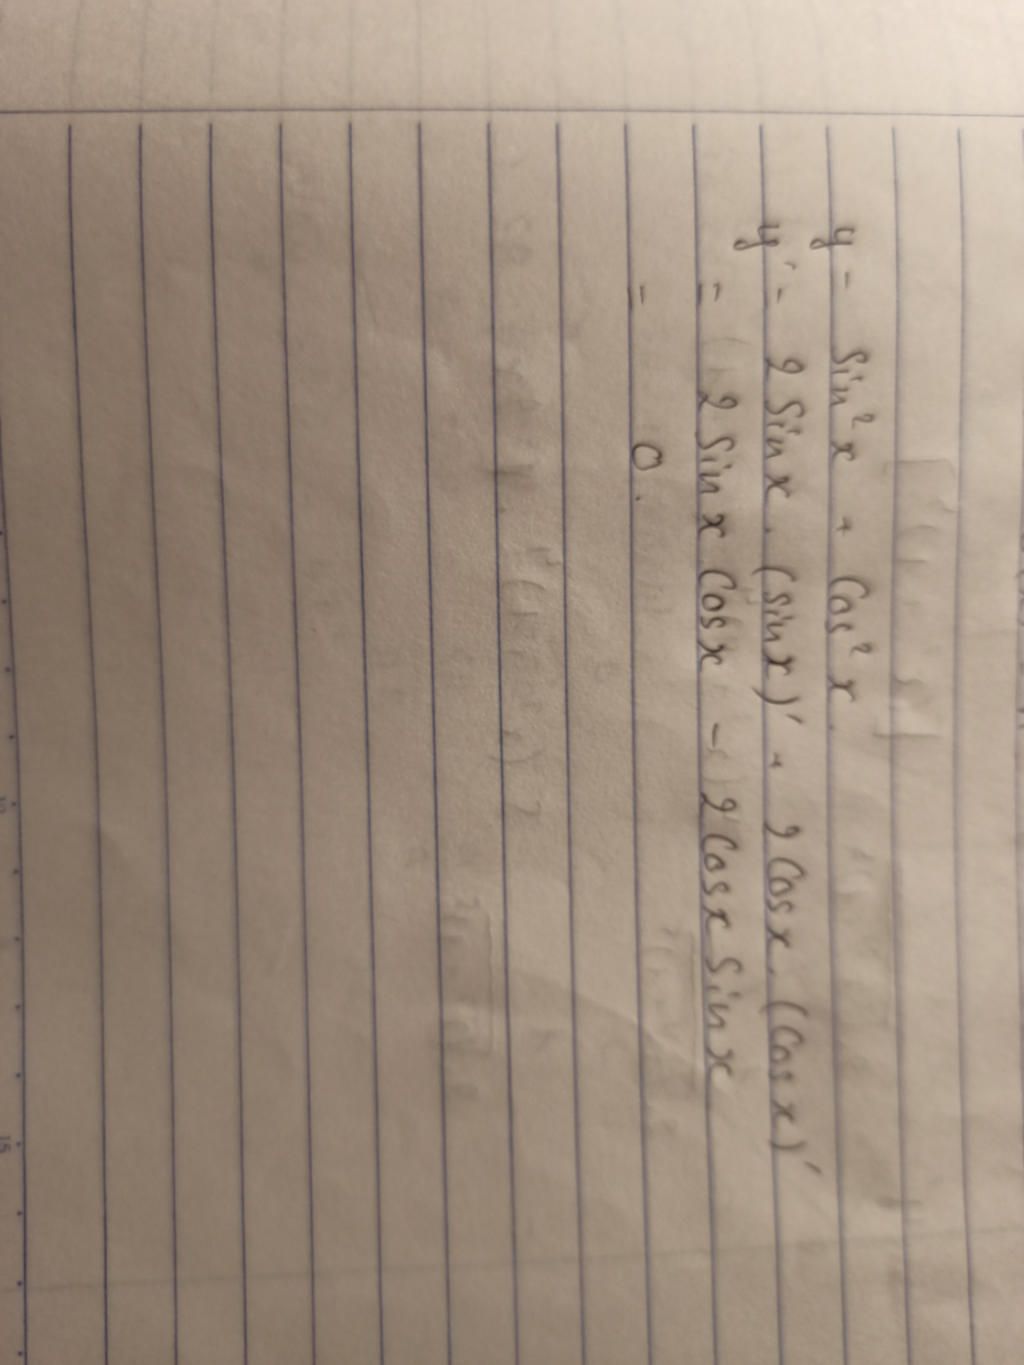 y = sin²x + cos²x.
y' = 2 sin x . (sin x)' + 2 cos x . (cos x)'
= 2 sin x cos x - 2 cos x sin x
= 0.